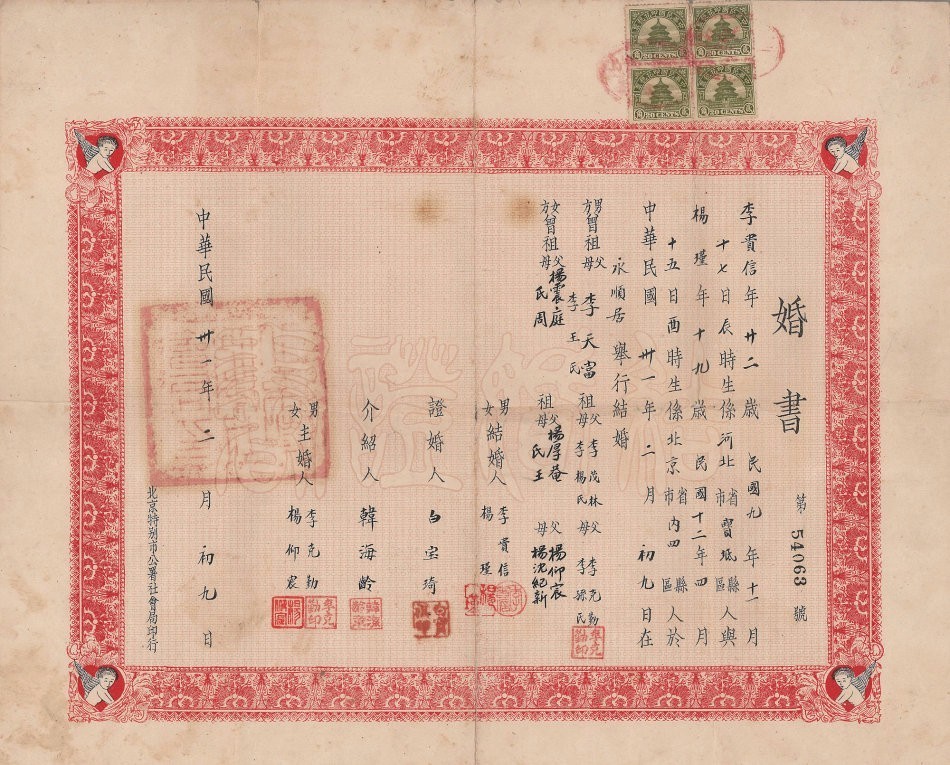 婚書
第 54063 號
李貴信年廿二歲民國九年十一月
十七日辰時生係河北省市寶坻縣區人與
楊瑾年十九歲民國十二年四月
十五日酉時生係北京省市內四縣區人於
中華民國卅一年二月初九日在
永順居舉行結婚
男方曾祖父李天富祖父李茂林父李克勤
母李王氏母李楊氏母李孫氏
女方曾祖父楊震庭祖父楊厚菴父楊仰宸
母氏周母氏王母楊沈紀新
男女結婚人李貴信
楊瑾
證婚人白宝琦
介紹人韓海齡
男女主婚人李克勤
楊仰宸
中華民國卅一年二月初九日
北京特別市公署社會局印行
20 CENTS
20 CENTS
20 CENTS
20 CENTS